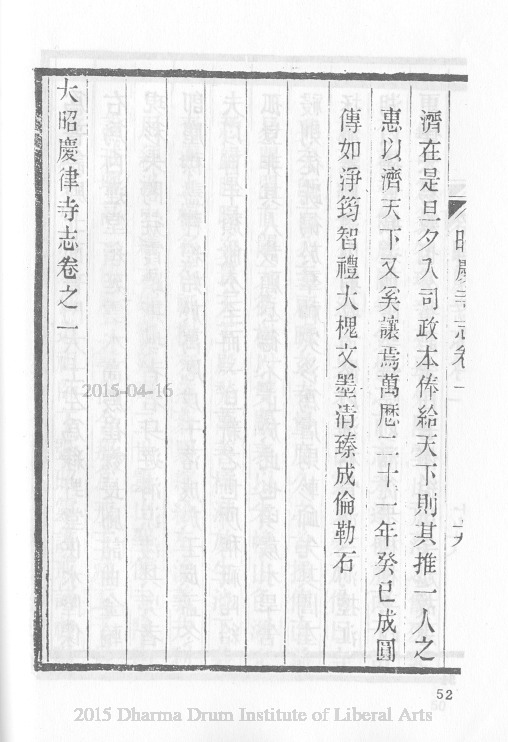 濟在是旦夕入司政本俸給天下則其推一人之
惠以濟天下又奚讓焉萬厯二十一年癸巳成圓
傳如淨筠智禮大槐文墨清臻成倫勒石
大昭慶律寺志卷之一
昭慶寺志卷一
52
2015-04-16
2015 Dharma Drum Institute of Liberal Arts